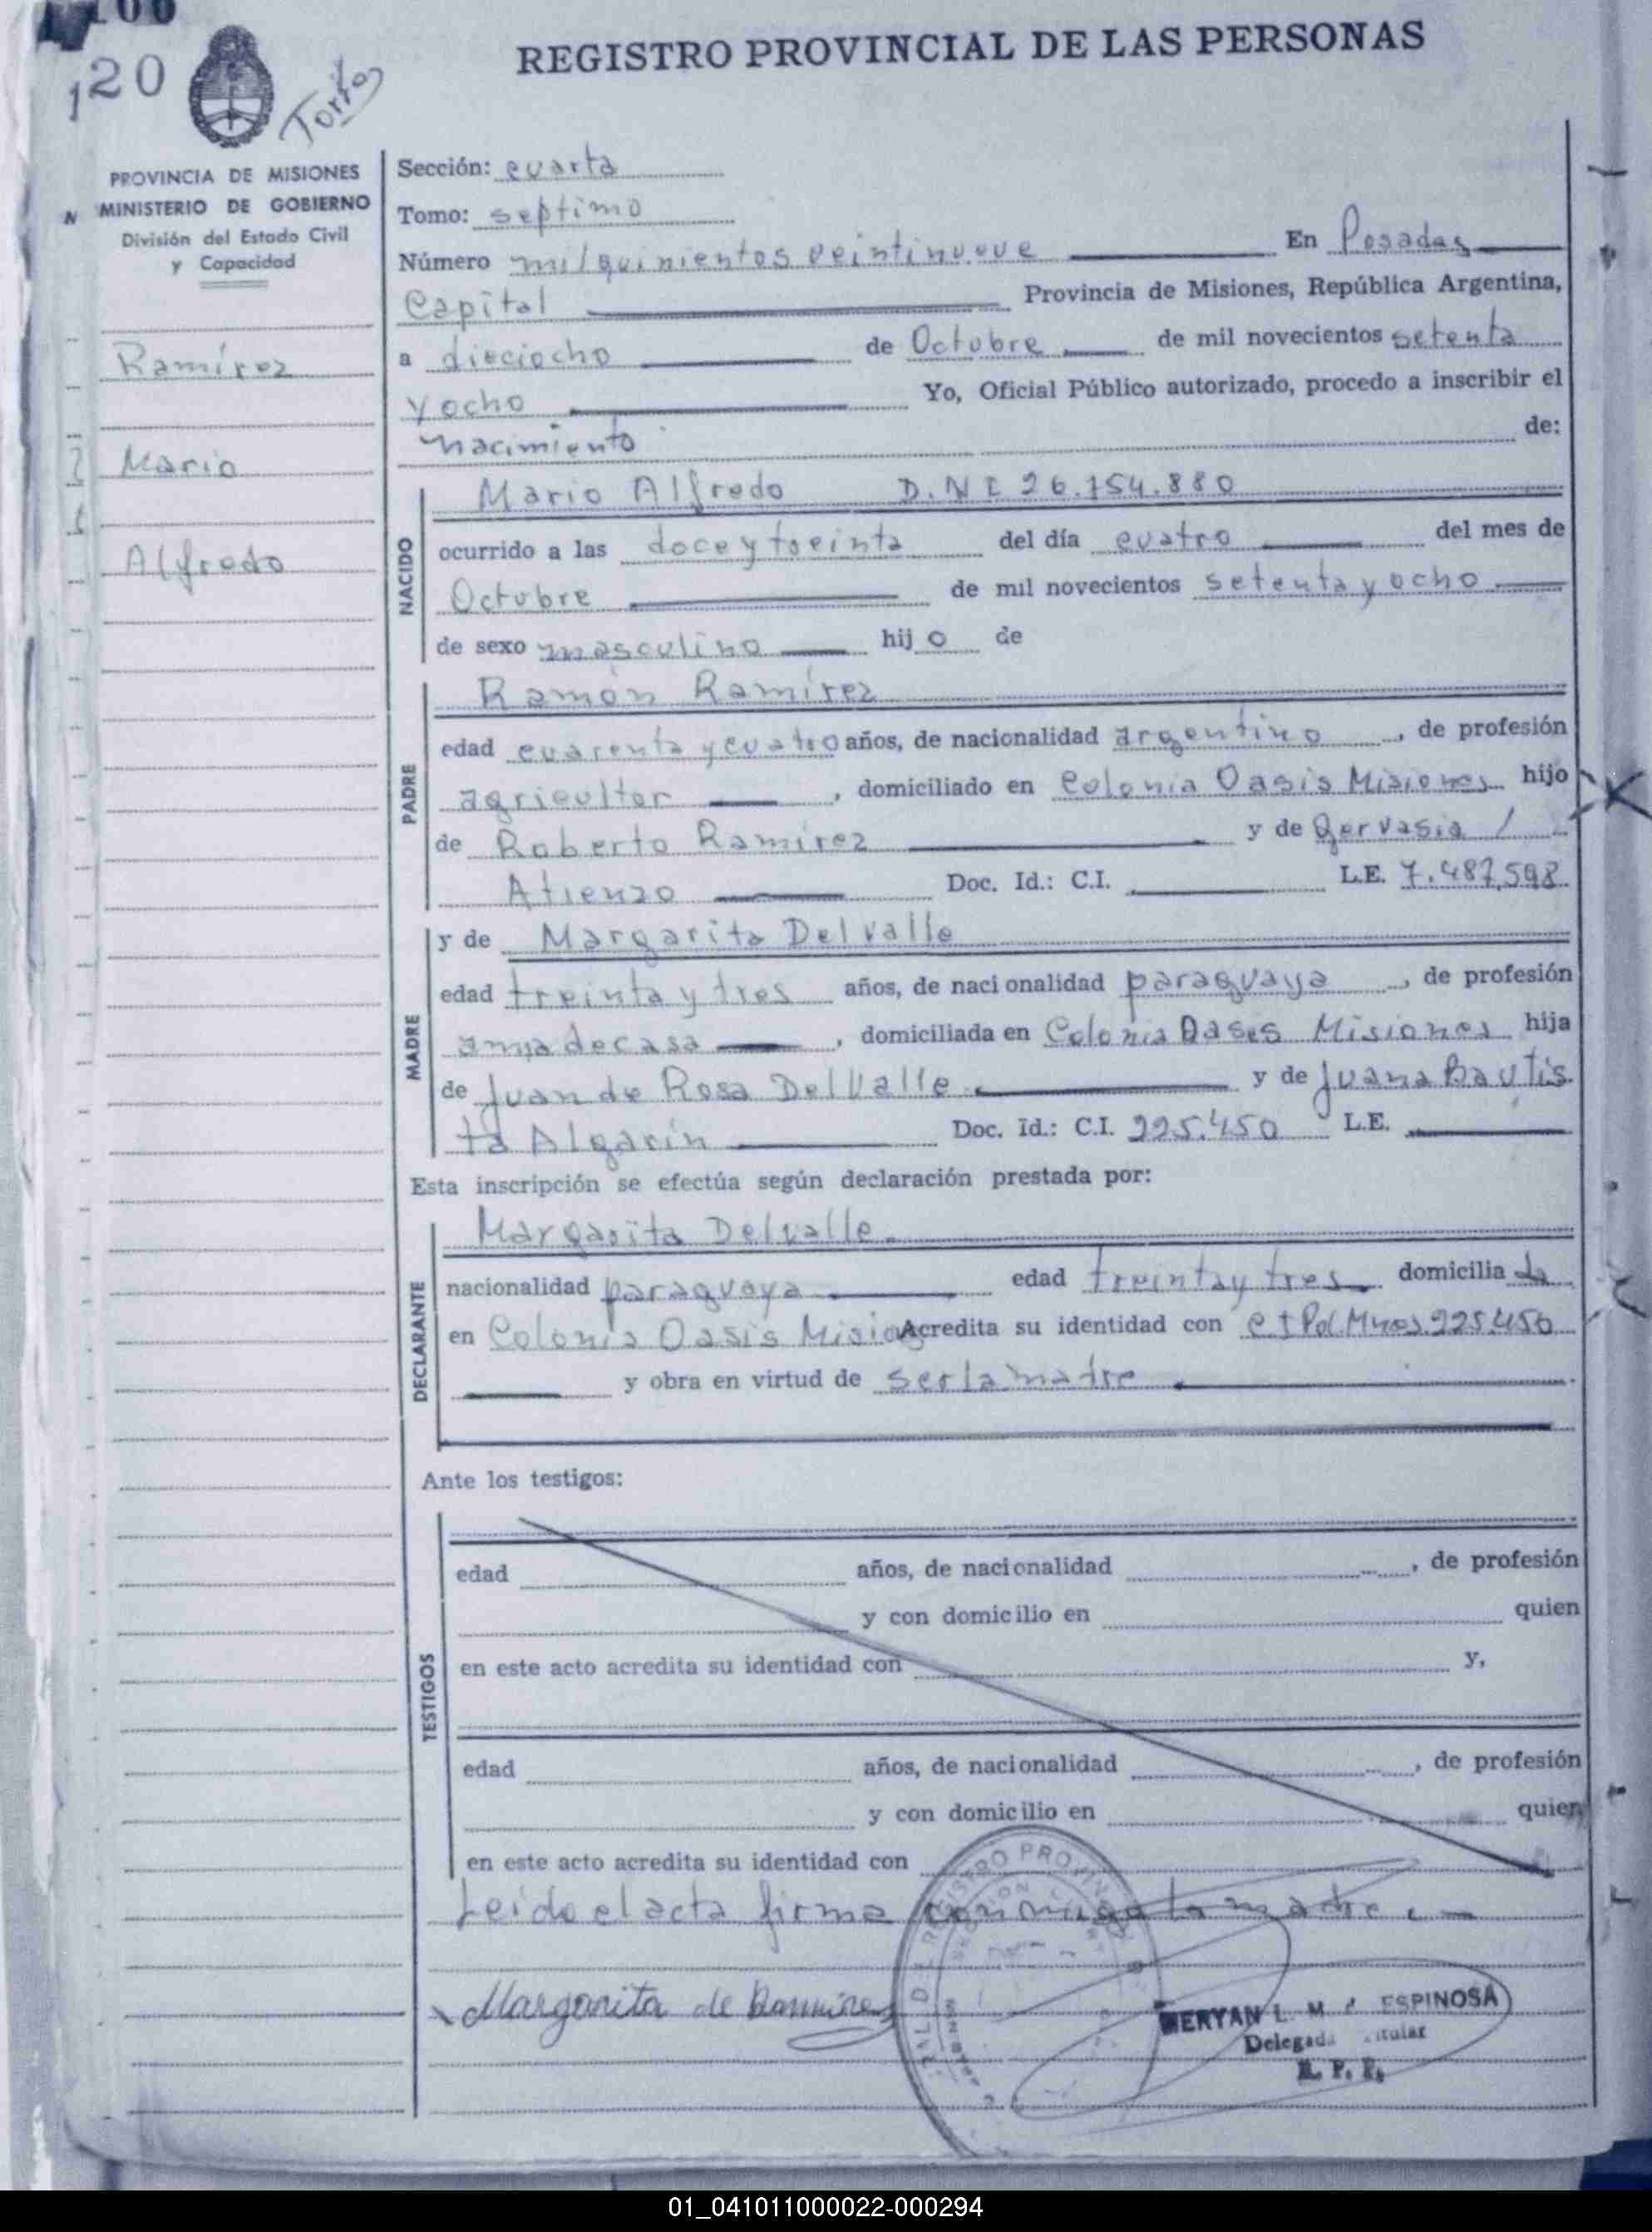 100
120
Torres
REGISTRO PROVINCIAL DE LAS PERSONAS
PROVINCIA DE MISIONES
MINISTERIO DE GOBIERNO
División del Estado Civil
y Capacidad
Ramírez
Mario
Alfredo
Sección: cuarta
Tomo: septimo
Número milquinientos veintinueve En Posadas
Capital Provincia de Misiones, República Argentina,
a dieciocho de Octubre de mil novecientos setenta
y ocho Yo, Oficial Público autorizado, procedo a inscribir el
nacimiento de:
NACIDO
Mario Alfredo D.N I 26.754.880
ocurrido a las doce y treinta del día cuatro del mes de
Octubre de mil novecientos setenta y ocho
de sexo masculino hij o de
PADRE
Ramón Ramírez
edad cuarenta y cuatro años, de nacionalidad argentino, de profesión
agricultor, domiciliado en Colonia Oasis Misiones hijo
de Roberto Ramírez y de Gervasia /
Atienzo Doc. Id.: C.I. L.E. 7.487.598
MADRE
y de Margarita Delvalle
edad treinta y tres años, de nacionalidad paraguaya, de profesión
ama de casa, domiciliada en Colonia Oasis Misiones hija
de Juan de Rosa Delvalle y de Juana Bautis
ta Algarín Doc. Id.: C.I. 225.450 L.E.
Esta inscripción se efectúa según declaración prestada por:
DECLARANTE
Margarita Delvalle
nacionalidad paraguaya edad treinta y tres domicilia da
en Colonia Oasis Misiones Acredita su identidad con C I Pol Mnes 225.450
y obra en virtud de ser la madre
Ante los testigos:
TESTIGOS
edad años, de nacionalidad , de profesión
y con domicilio en quien
en este acto acredita su identidad con y,
edad años, de nacionalidad , de profesión
y con domicilio en quien
en este acto acredita su identidad con
Leido el acta firma conmigo la madre
Margarita de Ramírez
REGISTRO PROVIN
ERYAN L. M. ESPINOSA
Delegada Titular
R. P. P.
01_041011000022-000294